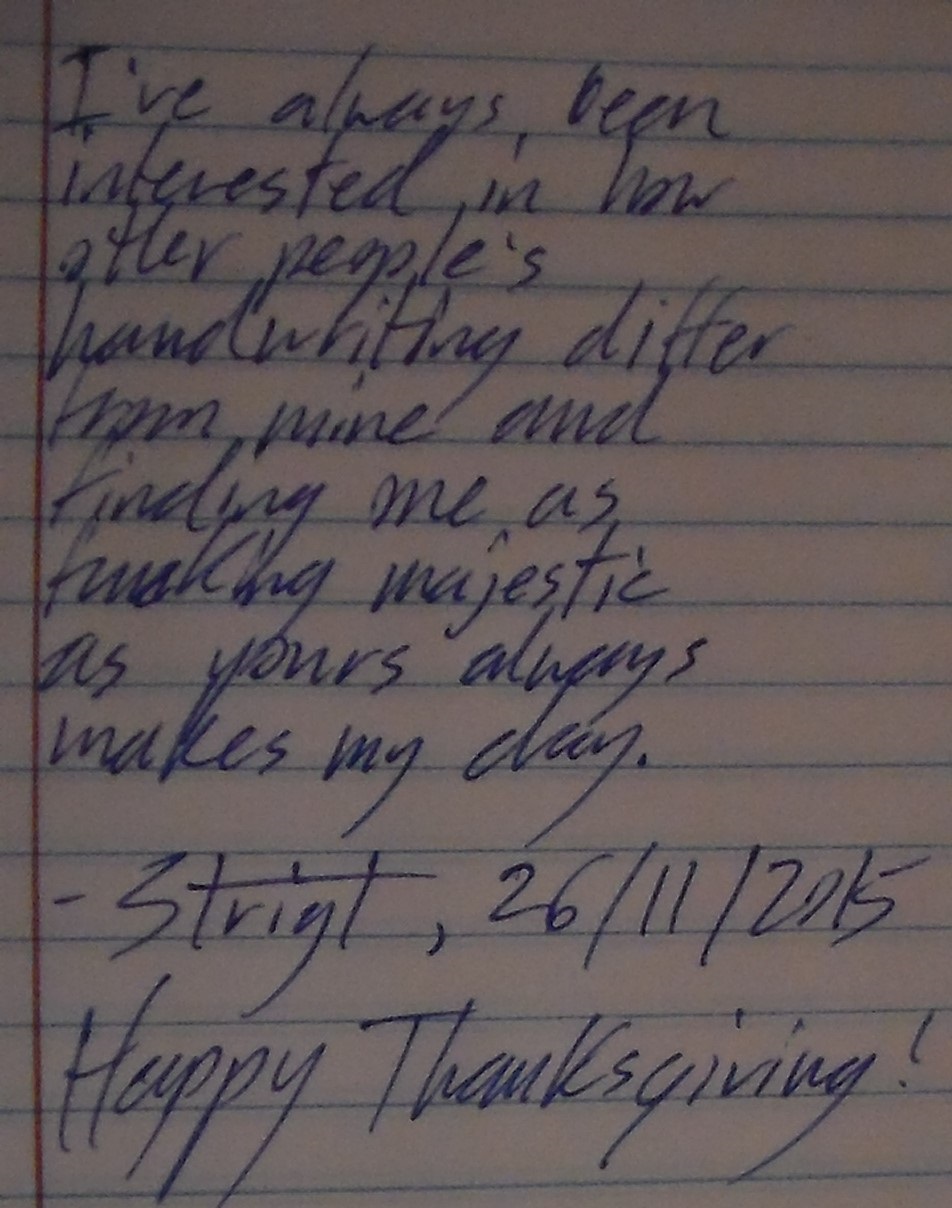 I've always been
interested in how
other people's
handwriting differ
from mine and
finding me as
fucking majestic
as yours always
makes my day.
- Strigt, 26/11/2015
Happy Thanksgiving!